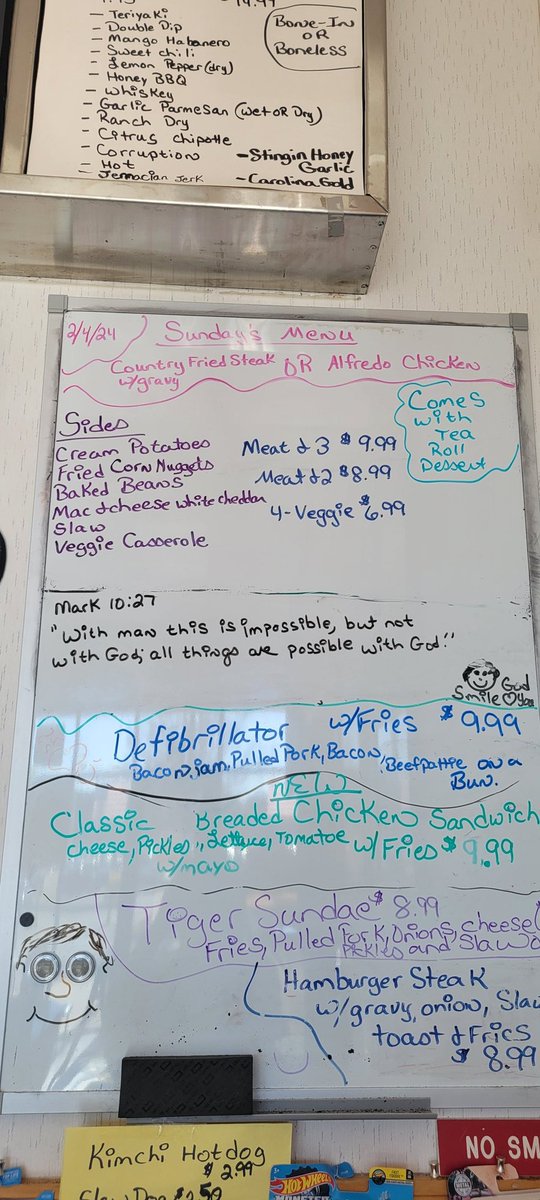 - Teriyaki
- Double Dip
- Mango Habanero
- Sweet chili
- Lemon Pepper (dry)
- Honey BBQ
- Whiskey
- Garlic Parmesan (wet OR Dry)
- Ranch Dry
- Citrus chipotle
- Corruption
- Hot
- Jemacian Jerk
Bone-In
OR
Boneless
- Stingin Honey
Garlic
- Carolina Gold
2/4/24
Sunday's Menu
Country Fried Steak OR Alfredo Chicken
w/gravy
Sides
Cream Potatoes
Fried Corn Nuggets
Baked Beans
Mac & cheese white cheddar
Slaw
Veggie Casserole
Meat & 3 $9.99
Meat & 2 $8.99
4-Veggie $6.99
Comes
with
Tea
Roll
Dessert
Mark 10:27
"With man this is impossible, but not
with God; all things are possible with God."
Smile God
♡ You
Defibrillator w/Fries $9.99
Bacon, jam, Pulled Pork, Bacon, Beef pattie on a
Bun.
NEW
Classic Breaded Chicken Sandwich
cheese, Pickles, Lettuce, Tomatoe w/Fries $9.99
w/mayo
Tiger Sundae $8.99
Fries, Pulled Pork, Onions, cheese
Pickles and Slaw
Hamburger Steak
w/gravy, onion, Slaw
toast & Fries
$8.99
Kimchi Hotdog
$2.99
Slaw Dog $2.50
Hot Wheels
MONSTER
NO SM